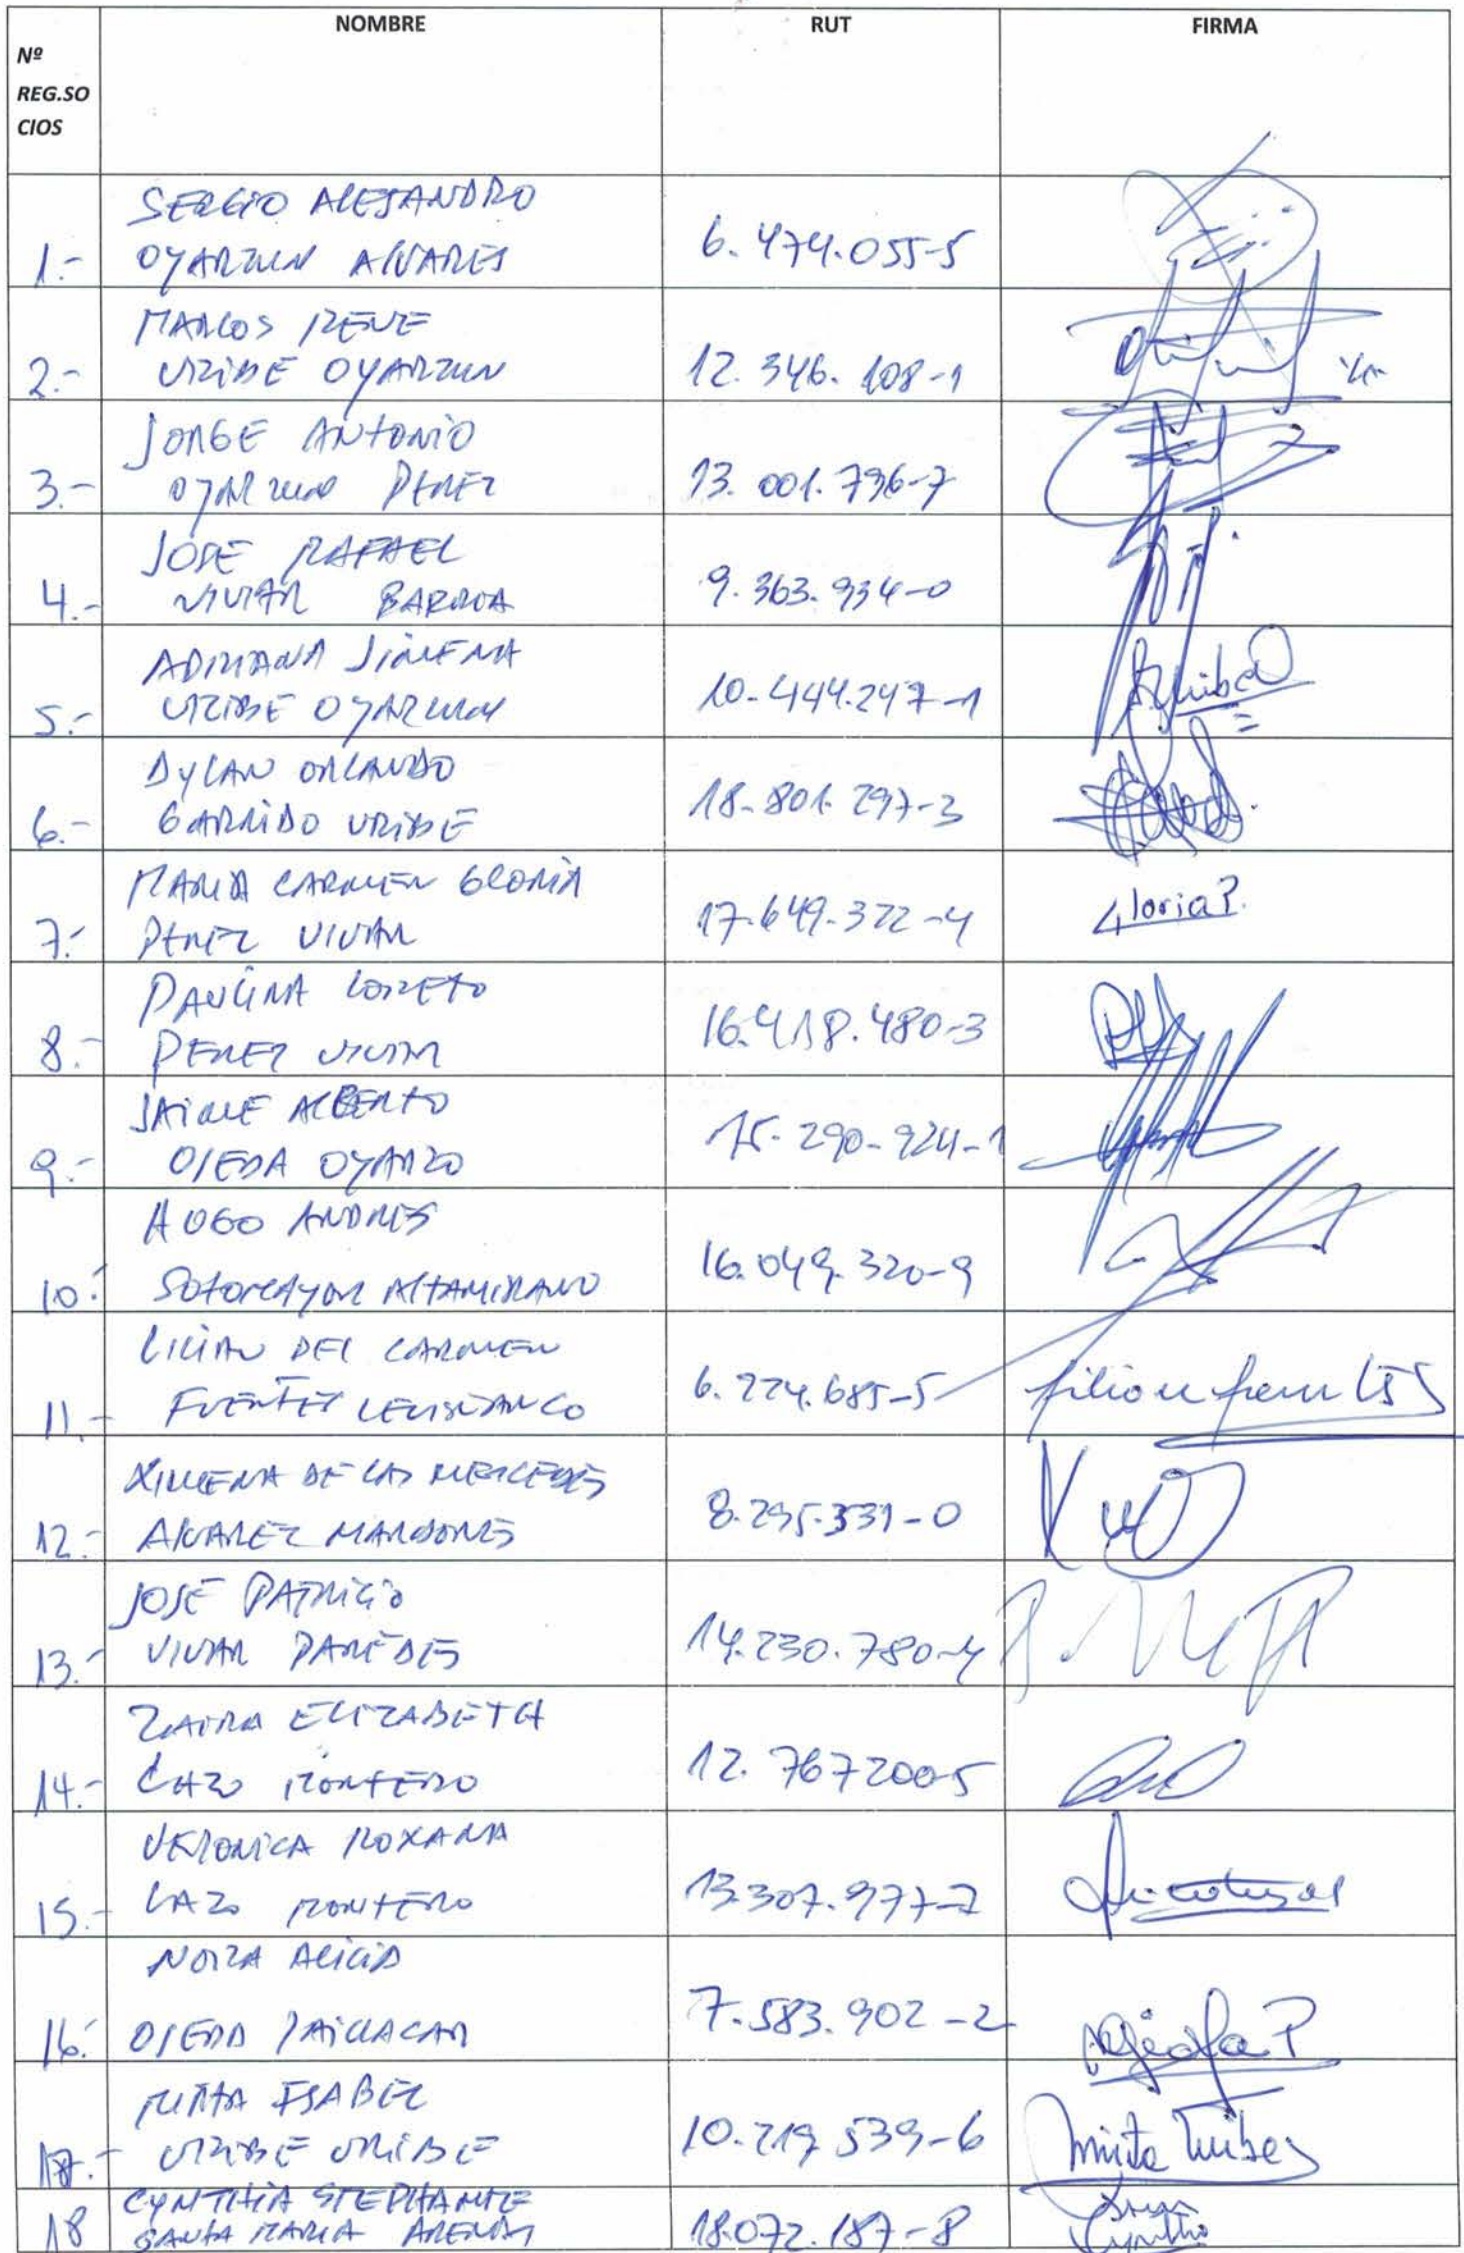 Nº
REG.SO
CIOS
NOMBRE
RUT
FIRMA
1.-
SERGIO ALEJANDRO
OYARZUN ALVARES
6.474.055-5
2.-
MARCOS RENE
URIBE OYARZUN
12.346.108-1
3.-
JORGE ANTONIO
OYARZUN PEREZ
13.001.796-7
4.-
JOSE RAFAEL
VIVAR BARRIA
9.363.934-0
5.-
ADRIANA JIMENA
URIBE OYARZUN
10-444.247-1
6.-
DYLAN ORLANDO
GARRIDO URIBE
18-801.297-3
7.-
MARIA CARMEN GLORIA
PEREZ VIVAR
17.649.322-4
Gloria P.
8.-
PAULINA LORETO
PEREZ VIVAR
16.418.480-3
9.-
JAIME ALBERTO
OJEDA OYARZO
15-290-924-1
10.-
HUGO ANDRES
SOTOMAYOR ALTAMIRANO
16.049.320-9
11.-
LILIAN DEL CARMEN
FUENTES
6.224.685-5
12.-
XIMENA DE LAS MERCEDES
ALVAREZ MARDONES
8.295.331-0
13.-
JOSE PATRICIO
VIVAR PAREDES
14.230.780-4
14.-
ZAIRA ELIZABETH
LAZO MONTERO
12.7672005
15.-
VERONICA ROXANA
LAZO MONTERO
13.307.977-7
16.-
NORA ALICIA
OJEDA PAILLACAR
7.583.902-2
17.-
MIRTA ISABEL
URIBE URIBE
10.219539-6
Mirta Uribe
18
CYNTHIA STEPHANIE
SANTA MARIA ARENAS
18.072.187-8
Cynthia